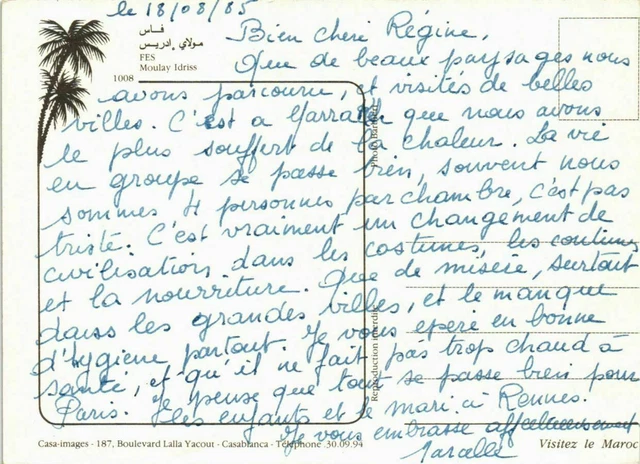 le 18/08/85
فاس
مولاي إدريس
FES
Moulay Idriss
1008
Bien chère Régine,
Que de beaux paysages nous
avons parcouru, et visités de belles
villes. C'est a Marrakech que nous avons
le plus souffert de la chaleur. La vie
en groupe se passe bien, souvent nous
sommes 4 personnes par chambre, c'est pas
triste. C'est vraiment un changement de
civilisation, dans les costumes, les coutumes
et la nourriture. Que de misère, surtout
dans les grandes villes, et le manque
d'hygiene partout. Je vous espere en bonne
santé, et qu'il ne fait pas trop chaud à
Paris. Je pense que tout se passe bien pour
les enfants et le mari à Rennes.
Je vous embrasse affectueusement
Marcelle
Photo
Reproduction interdite
Casa-images - 187, Boulevard Lalla Yacout - Casablanca - Téléphone 30.09.94
Visitez le Maroc